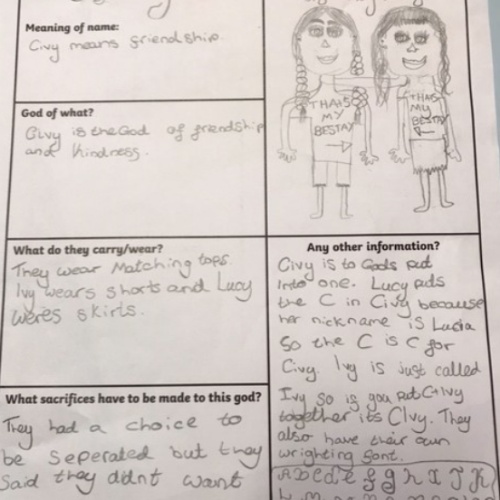 Meaning of name:
Civy means friendship.
God of what?
Civy is the God of friendship
and kindness.
THATS
MY
BESTAY
THATS
MY
BESTAY
What do they carry/wear?
They wear Matching tops
Ivy wears shorts and Lucy
weres skirts.
Any other information?
Civy is to Gods put
into one. Lucy puts
the C in Civy because
her nickname is Lucia
So the C is C for
Civy. Ivy is just called
Ivy so is you put C+Ivy
together its CIvy. They
also have their own
wrighting font.
A b C d e f g h I J K
What sacrifices have to be made to this god?
They had a choice to
be seperated but they
said they didnt want